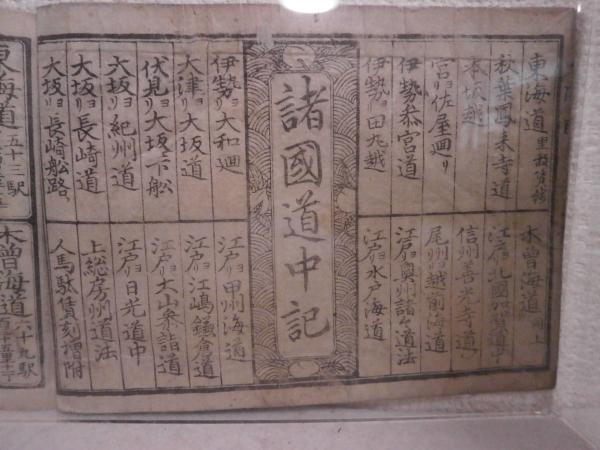 東海道
秋葉鳳来寺道
本坂越
宮ヨリ佐屋廻り
伊勢参宮道
伊勢ヨリ田丸越
木曽海道 同上
江戸ヨリ北国加賀道中
信州善光寺道
尾州ヨリ越前海道
江戸ヨリ奥州諸々道法
江戸ヨリ水戸海道
諸國道中記
伊勢ヨリ大和廻
大津ヨリ大坂道
伏見ヨリ大坂下舩
大坂ヨリ紀州道
大坂ヨリ長崎道
大坂ヨリ長崎舩路
江戸ヨリ甲州海道
江戸ヨリ江嶋鎌倉道
江戸ヨリ大山参詣道
江戸ヨリ日光道中
上総房州道法
人馬駄賃刻増附
東海道 五十三駅
木曽海道 六十九駅